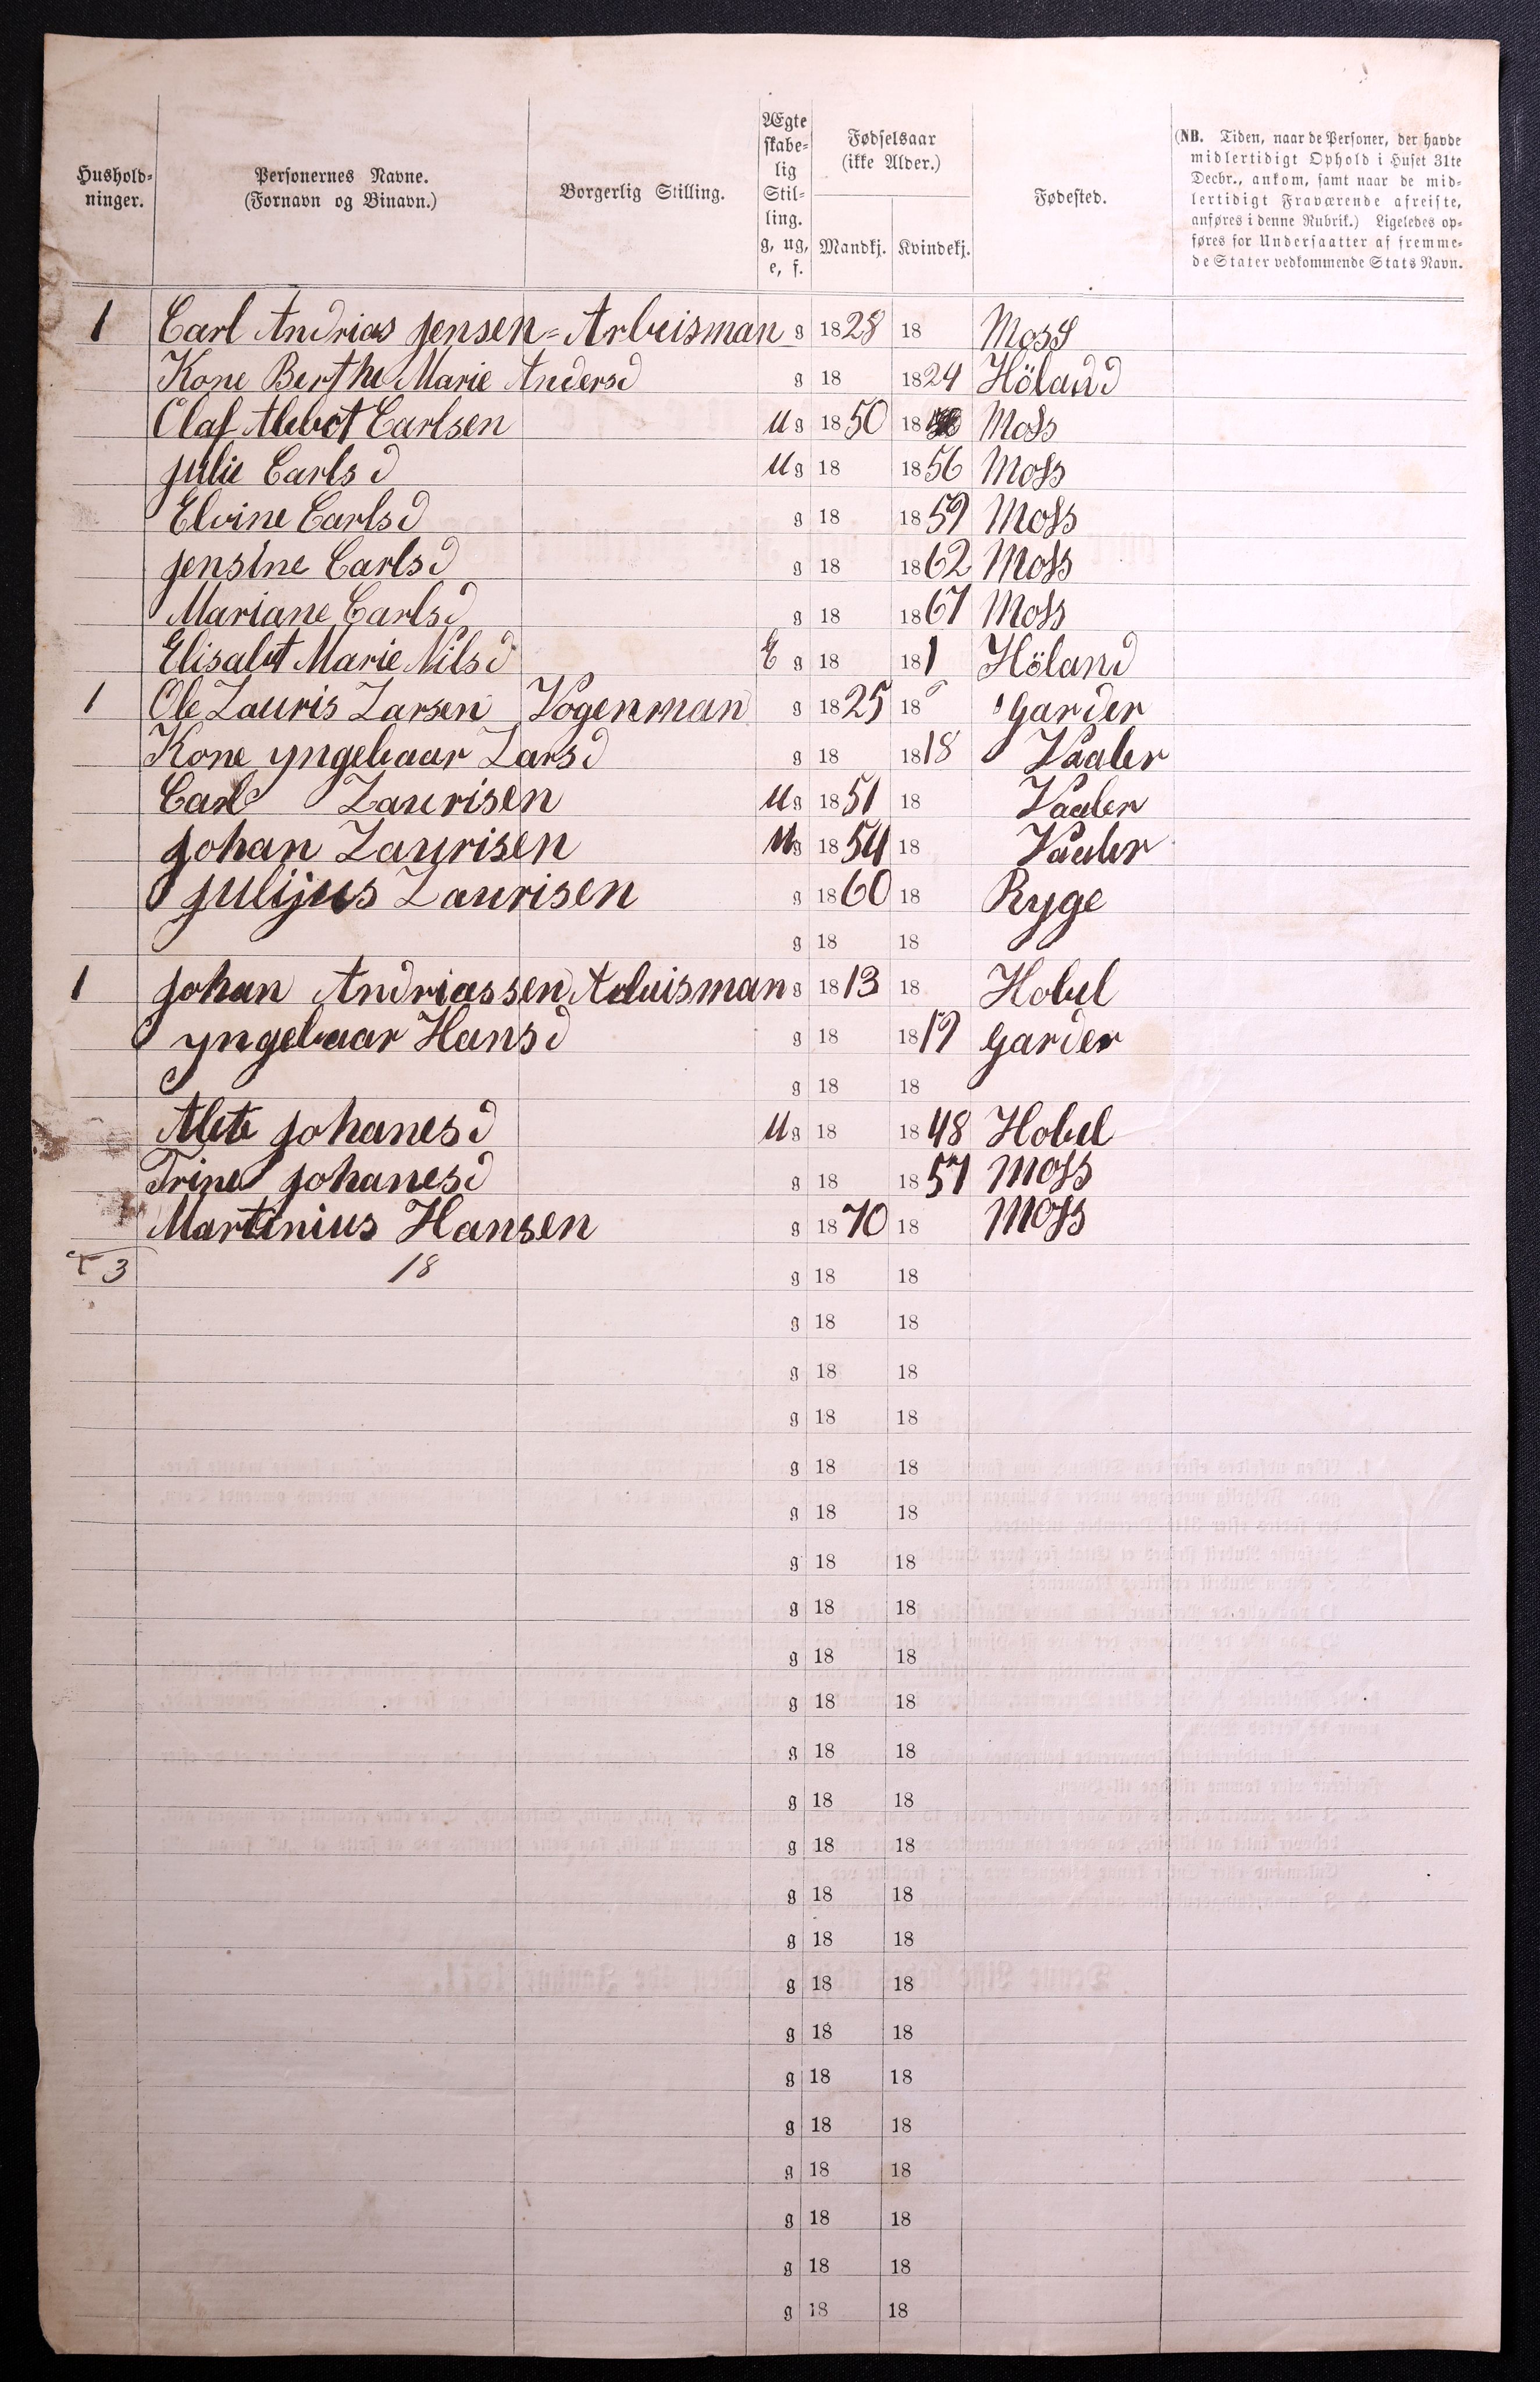 Hushold-
ninger.
Personernes Navne.
(Fornavn og Binavn.)
Borgerlig Stilling.
Ægte
skabe-
lig
Stil-
ling.
g, ug,
e, f.
Fødselsaar
(ikke Alder.)
Mandkj. Kvindekj.
Fødested.
(NB. Tiden, naar de Personer, der havde
midlertidigt Ophold i Huset 31te
Decbr., ankom, samt naar de mid-
lertidigt Fraværende afreiste,
anføres i denne Rubrik.) Ligeledes op-
føres for Undersaatter af fremme-
de Stater vedkommende Stats Navn.
1 Carl Andrias Jensen = Arbeisman g 1828 18 Moss
Kone Berthe Marie Andersd g 18 1824 Höland
Olaf Carlsen Ug 1850 18 Moss
Julie Carlsd Ug 18 1856 Moss
Elvine Carlsd g 18 1859 Moss
Jensine Carlsd g 18 1862 Moss
Mariane Carlsd g 18 1867 Moss
Elisabt Marie Nilsd E g 18 181 Höland
1 Ole Lauris Larsen Vogenman g 1825 18 Garder
Kone Yngebaar Larsd g 18 1818 Vaaler
Carl Laurisen Ug 1851 18 Vaaler
Johan Laurisen Ug 1854 18 Vaaler
Julijus Laurisen g 1860 18 Ryge
g 18 18
1 Johan Andriassen Arbeisman g 1813 18 Hobel
Yngebaar Hansd g 18 1819 Garder
g 18 18
Alete Johanesd Ug 18 1848 Hobel
Trine Johanesd g 18 1857 Moss
Martinius Hansen g 1870 18 Moss
3 18 g 18 18
g 18 18
g 18 18
g 18 18
g 18 18
g 18 18
g 18 18
g 18 18
g 18 18
g 18 18
g 18 18
g 18 18
g 18 18
g 18 18
g 18 18
g 18 18
g 18 18
g 18 18
g 18 18
g 18 18
g 18 18
g 18 18
g 18 18